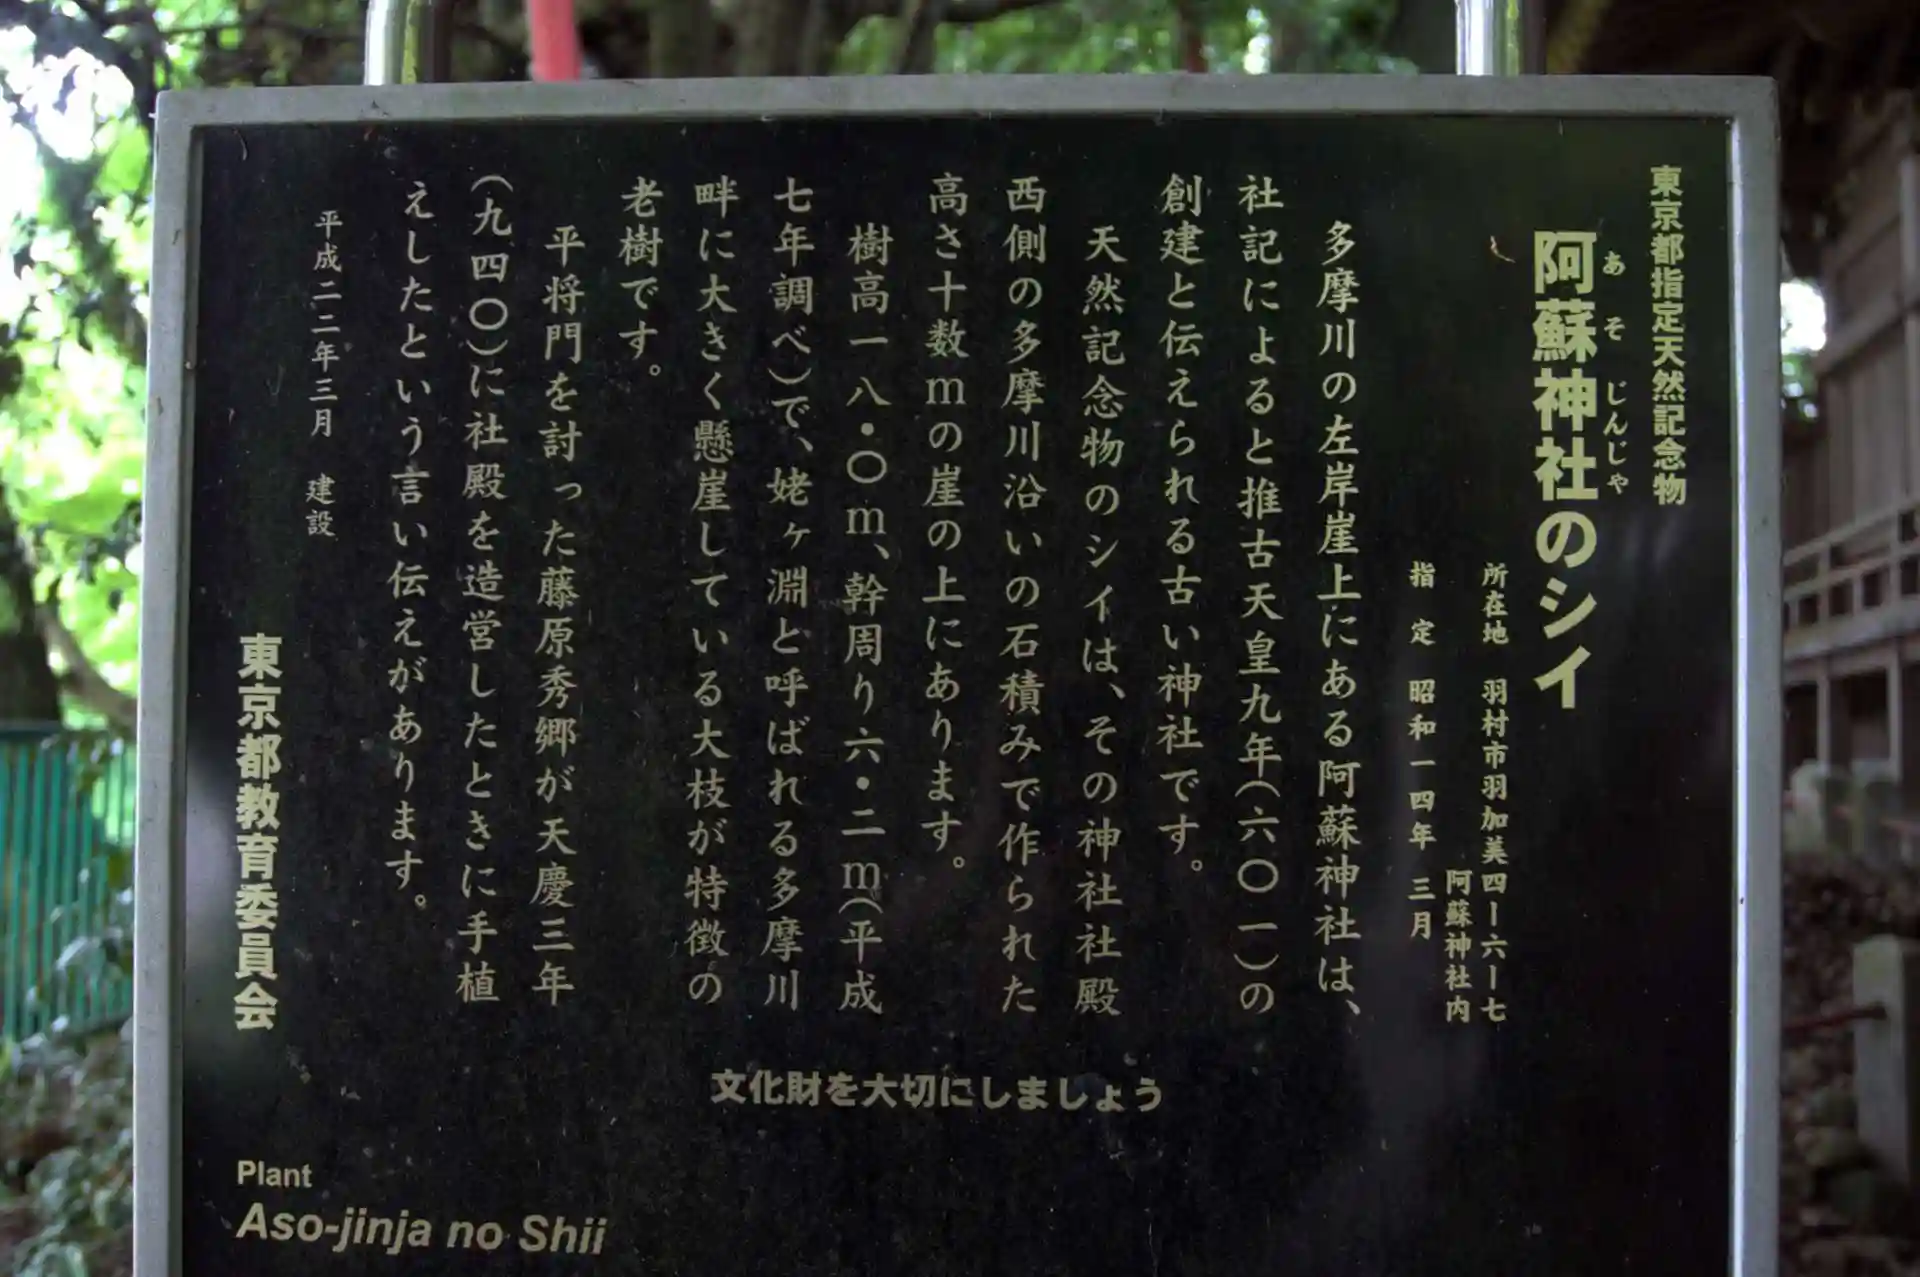 東京都指定天然記念物
阿蘇神社のシイ
あそじんじゃ
所在地 羽村市羽加美四ー六ー七
阿蘇神社内
指定 昭和一四年 三月
多摩川の左岸崖上にある阿蘇神社は、
社記によると推古天皇九年(六〇一)の
創建と伝えられる古い神社です。
天然記念物のシイは、その神社社殿
西側の多摩川沿いの石積みで作られた
高さ十数mの崖の上にあります。
樹高一八・〇m、幹周り六・二m(平成
七年調べ)で、姥ヶ淵と呼ばれる多摩川
畔に大きく懸崖している大枝が特徴の
老樹です。
平将門を討った藤原秀郷が天慶三年
(九四〇)に社殿を造営したときに手植
えしたという言い伝えがあります。
平成二二年三月 建設
東京都教育委員会
文化財を大切にしましょう
Plant
Aso-jinja no Shii